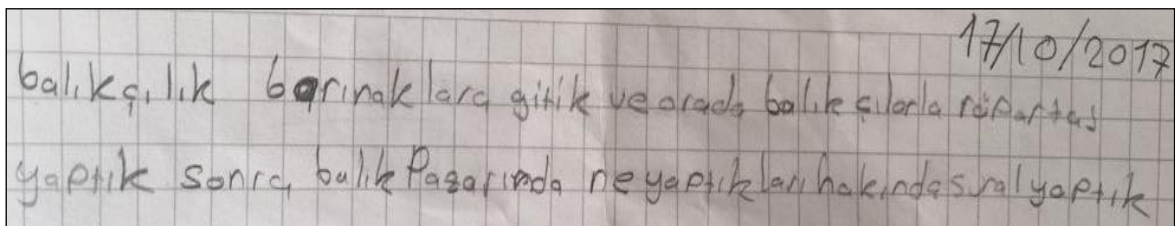 17/10/2017
balıkçılık barınaklara gitik ve orada balıkçılarla röpartaj
yaptık sonra balık Pazarında ne yaptıkları hakında sual yaptık